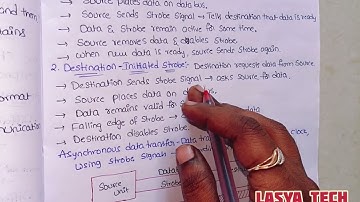 and then
tains
ormat
mmunicati
→ Source places data on data bus.
→ Source sends Strobe signal → Tells destination that data is ready
→ Data & Strobe remain active for some time.
→ Source removes data & disables Strobe.
→ When new data is ready, source sends Strobe again.
2. Destination-Initiated Strobe:- Destination requests data from Source
→ Destination Sends Strobe Signal → asks source for data.
→ Source places data on
→ Data remains valid for
→ Falling edge of Strobe
→ Destination disables Strobe.
Asynchronous data transfer- Data clock,
using Strobe Signals
Source unit
Data
Strobe
LASYA TECH